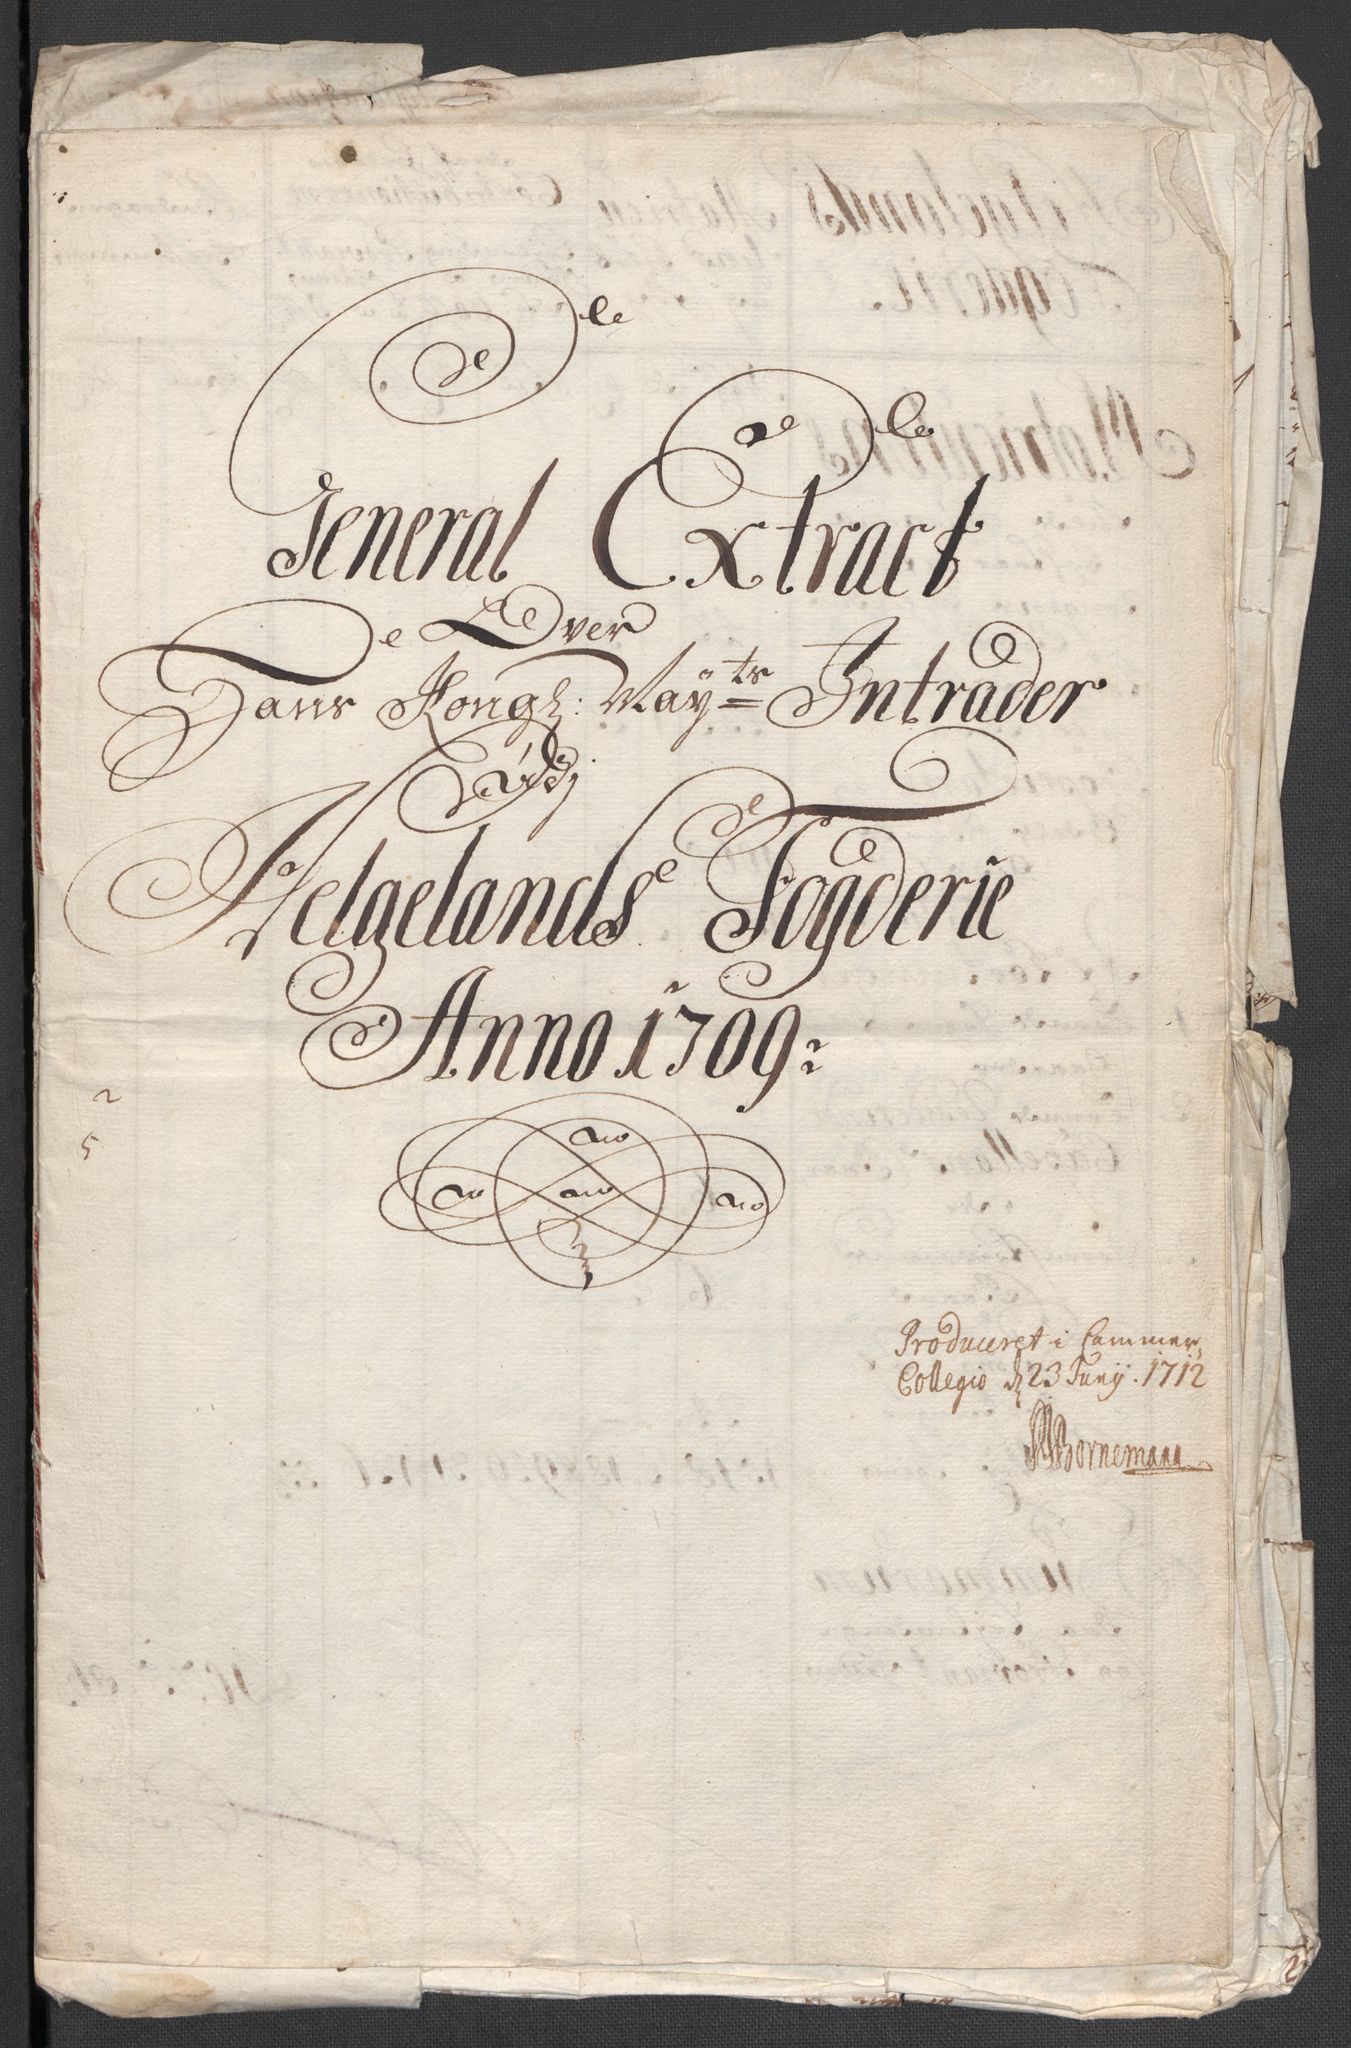 General Extract
Over
Hans Kongl: Mayts Intrader
Udj
Helgelands Fogderie
Anno 1709
2
5
Produceret i Cammer
Collegio d 23 Junij. 1712
Bornemann